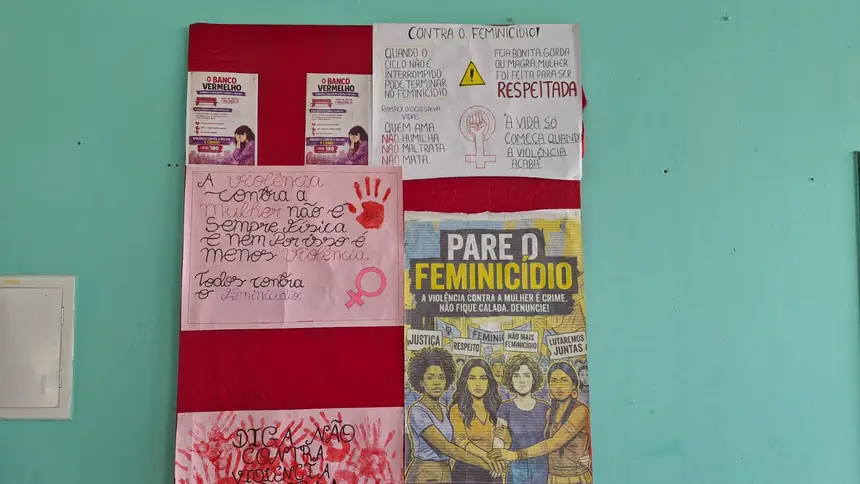 O BANCO
VERMELHO
LIGUE 180
O BANCO
VERMELHO
LIGUE 180
CONTRA O FEMINICÍDIO!
QUANDO O
CICLO NÃO É
INTERROMPIDO
PODE TERMINAR
NO FEMINICÍDIO
ROMPER O CICLO SALVA
VIDAS
QUEM AMA
NÃO HUMILHA
NÃO MALTRATA
NÃO MATA.
FEIA BONITA, GORDA
OU MAGRA, MULHER
FOI FEITA PARA SER
RESPEITADA
"A VIDA SÓ
COMEÇA QUANDO
A VIOLÊNCIA
ACABA"
A Violência
contra a
Mulher não é
Sempre Física
e nem Por isso é
menos Violência.
Todos contra
o Feminicídio.
PARE O
FEMINICÍDIO
A VIOLÊNCIA CONTRA A MULHER É CRIME.
NÃO FIQUE CALADA. DENUNCIE!
JUSTIÇA
RESPEITO
FEMINI
NÃO MAIS
FEMINICÍDIO
LUTAREMOS
JUNTAS
DIGA NÃO
CONTRA
VIOLÊNCIA